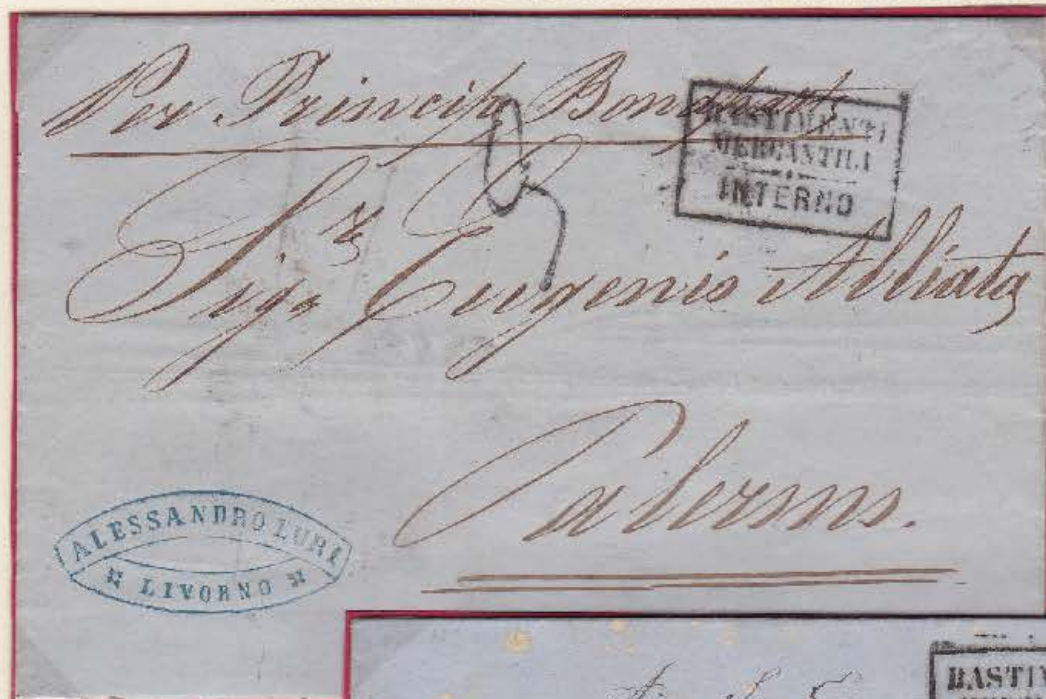 Per Principe Bonaparte
BASTIMENTI
MERCANTILI
INTERNO
Sigr Eugenio Alliata
Palermo.
ALESSANDRO LUBI
LIVORNO
BASTI